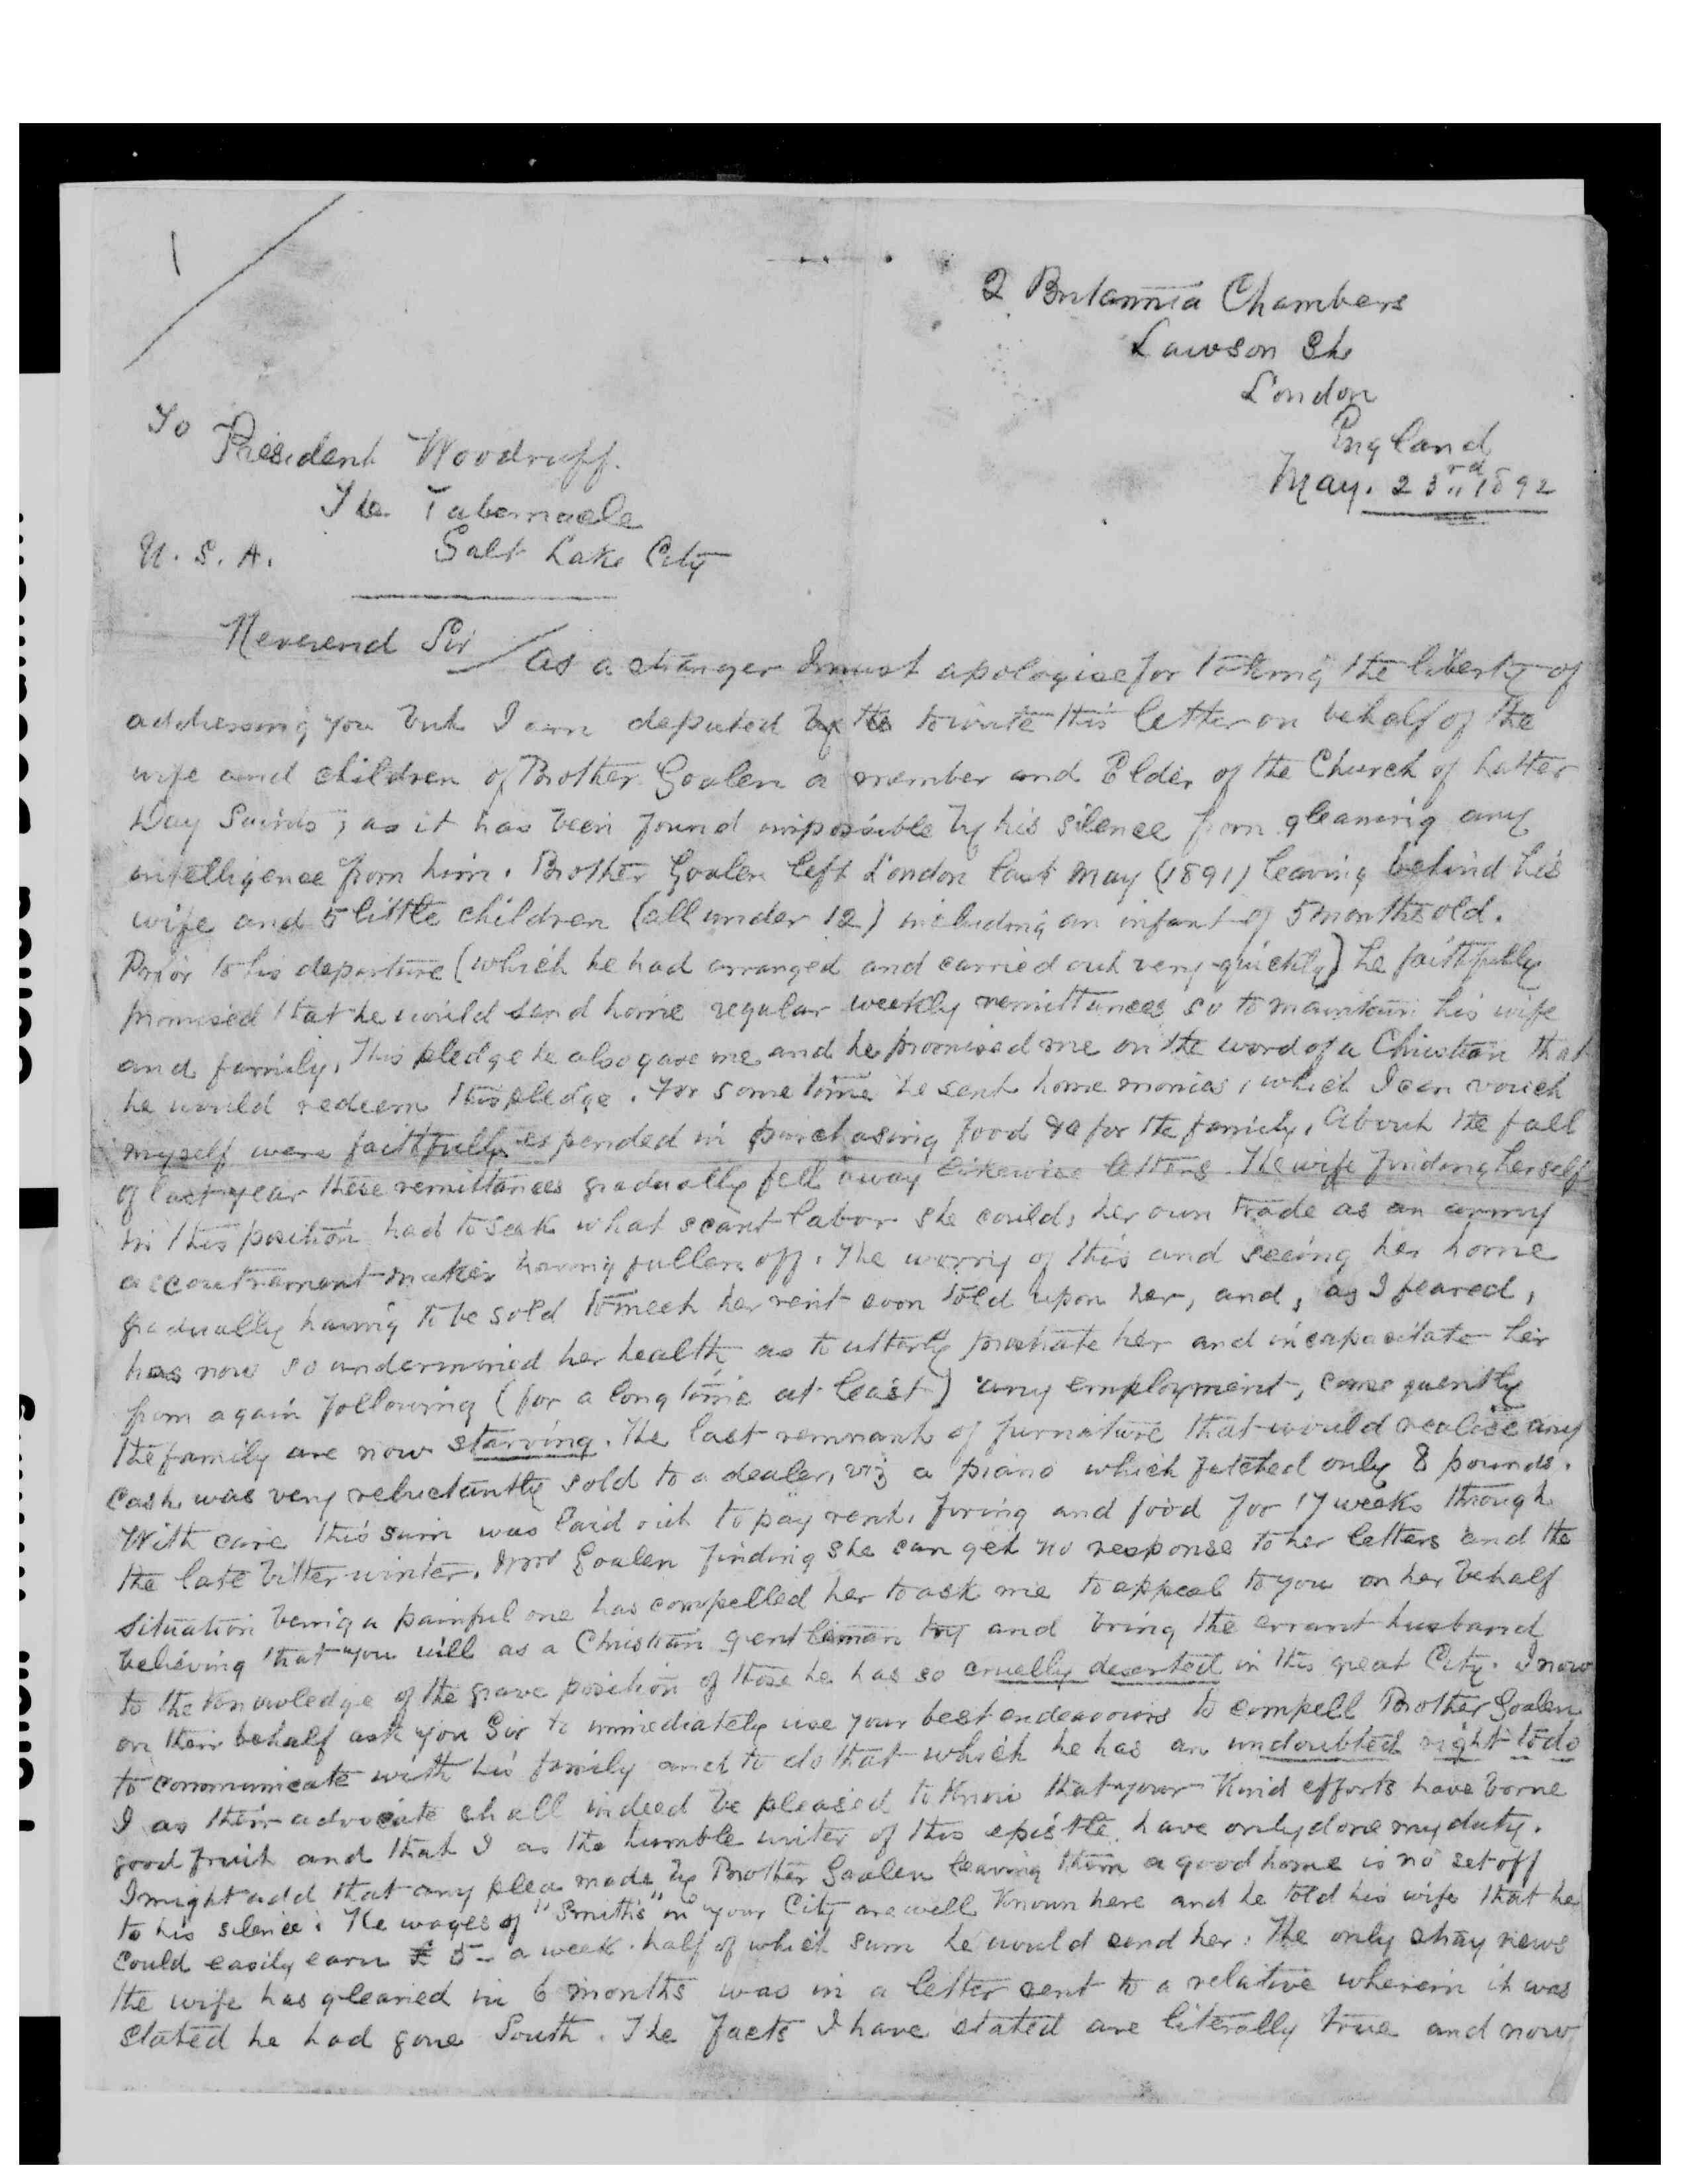 1
2 Britannia Chambers
Lawson Str
London
England
May. 23rd 1892
To
President Woodruff.
The Tabernacle
U. S. A. Salt Lake City
Reverend Sir
As a stranger I must apologise for taking the liberty of
addressing you but I am deputed by the to write this letter on behalf of the
wife and children of Brother Goalen a member and Elder of the Church of Latter
Day Saints; as it has been found impossible by his silence from gleaning any
intelligence from him. Brother Goalen left London last May (1891) leaving behind his
wife and 5 little children (all under 12) including an infant of 5 months old.
Prior to his departure (which he had arranged and carried out very quickly) he faithfully
promised that he would send home regular weekly remittances so to maintain his wife
and family. This pledge he also gave me and he promised me on the word of a Christian that
he would redeem this pledge. For some time he sent home monies, which I can vouch
myself were faithfully expended in purchasing food &c for the family. About the fall
of last year these remittances gradually fell away likewise letters. The wife finding herself
in this position had to seek what scant labor she could, her own trade as an army
accoutrement maker having fallen off. The worry of this and seeing her home
gradually having to be sold to meet her rent soon told upon her, and, as I feared,
has now so undermined her health as to utterly prostrate her and incapacitate her
from again following (for a long time at least) any employment, consequently
the family are now starving. The last remnant of furniture that would realise any
cash was very reluctantly sold to a dealer, viz a piano which fetched only 8 pounds.
With care this sum was laid out to pay rent, firing and food for 17 weeks through
the late bitter winter. Mrs Goalen finding she can get no response to her letters and the
situation being a painful one has compelled her to ask me to appeal to you on her behalf
believing that you will as a Christian gentleman try and bring the errant husband
to the knowledge of the grave position of those he has so cruelly deserted in this great City. I now
on their behalf ask you Sir to immediately use your best endeavours to compell Brother Goalen
to communicate with his family and to do that which he has an undoubted right to do
I as their advocate shall indeed be pleased to know that your kind efforts have borne
good fruit and that I as the humble writer of this epistle, have only done my duty.
I might add that any plea made by Brother Goalen leaving them a good home is no set off
to his silence. The wages of "Smiths" in your City are well known here and he told his wife that he
could easily earn £ 5 - a week. half of which sum he would send her. The only stray news
the wife has gleaned in 6 months was in a letter sent to a relative wherein it was
stated he had gone South. The facts I have stated are literally true and now